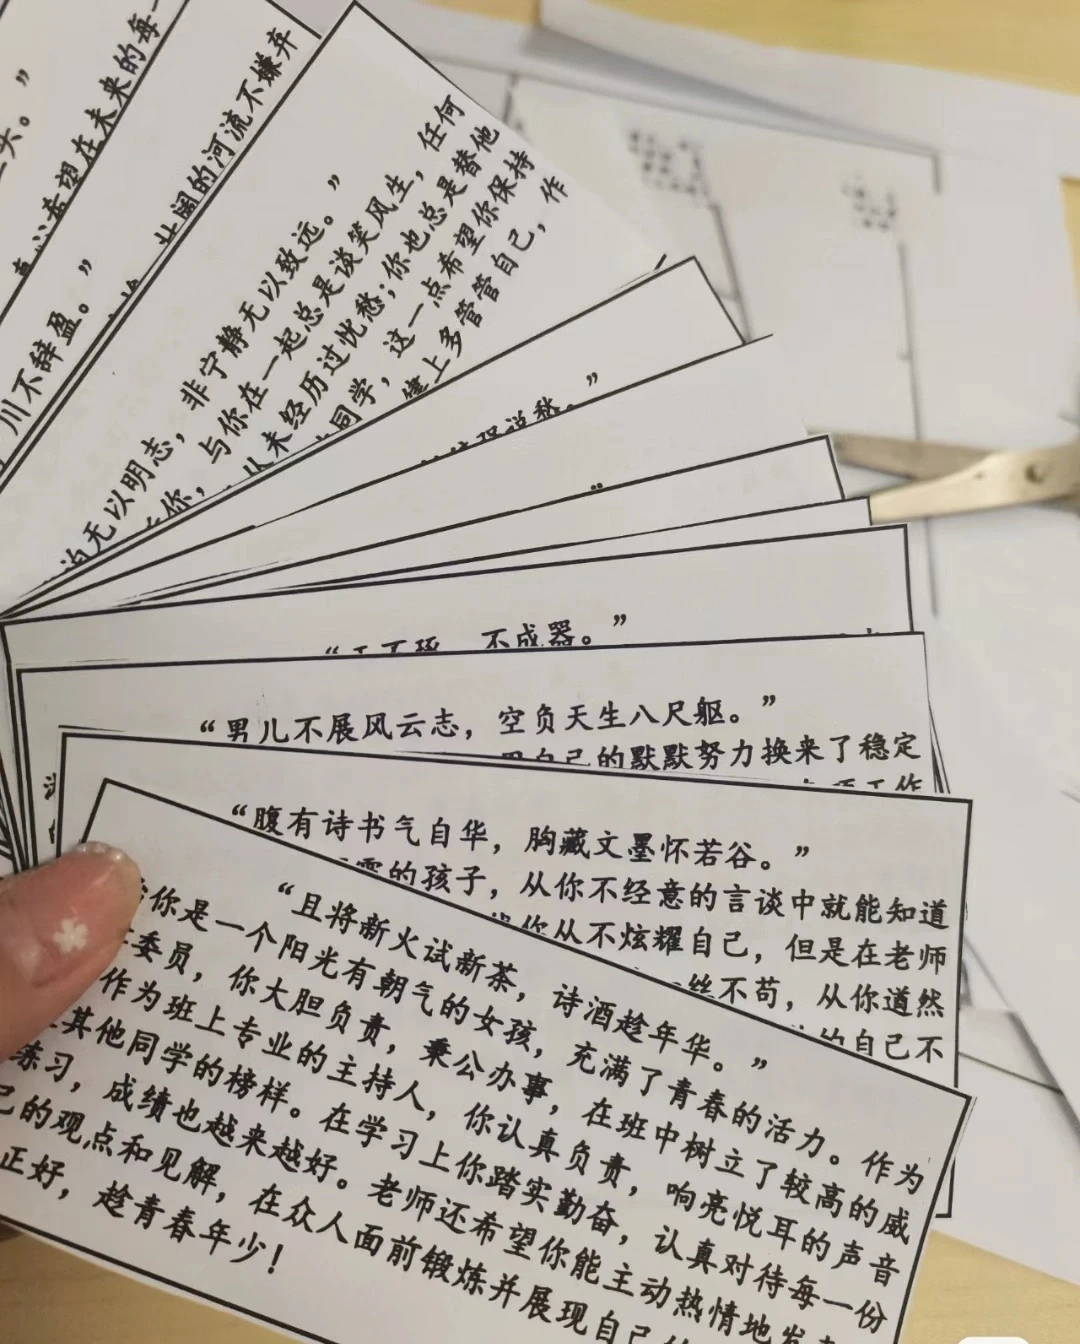 头。”
真心希望在未来的每一
川不辞盈。”
壮阔的河流不嫌弃
泊无以明志，非宁静无以致远。”
你，与你在一起总是谈笑风生，任何
从未经历过忧愁；你也总是替他
同学，这一点希望你保持
上多管管自己，作
不成器。”
“男儿不展风云志，空负天生八尺躯。”
用自己的默默努力换来了稳定
“腹有诗书气自华，胸藏文墨怀若谷。”
的孩子，从你不经意的言谈中就能知道
你从不炫耀自己，但是在老师
丝不苟，从你道然
的自己不
“且将新火试新茶，诗酒趁年华。”
你是一个阳光有朝气的女孩，充满了青春的活力。作为
委员，你大胆负责，秉公办事，在班中树立了较高的威
作为班上专业的主持人，你认真负责，响亮悦耳的声音
其他同学的榜样。在学习上你踏实勤奋，认真对待每一份
练习，成绩也越来越好。老师还希望你能主动热情地发
己的观点和见解，在众人面前锻炼并展现自己
正好，趁青春年少！